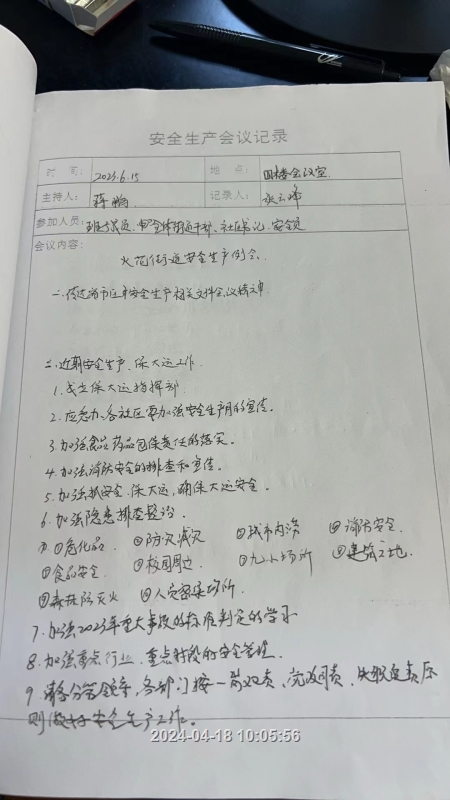 安全生产会议记录
时 间： 2023.6.15 地 点： 四楼会议室
主持人： 蒋鹏 记录人：
参加人员： 班子成员、全体街道干部、社区书记、安全员
会议内容：
火花街道安全生产例会.
一、传达省市区安全生产相关文件会议精神
二、近期安全生产、保大运工作
1. 成立保大运指挥部
2. 应急办、各社区要加强安全生产月的宣传.
3. 加强食品药品包保责任的落实.
4. 加强消防安全的排查和宣传.
5. 加强抓安全、保大运，确保大运安全.
6. 加强隐患排查整治.
①危化品. ②防汛减灾 ③城市内涝 ④消防安全.
⑤食品安全. ⑥校园周边. ⑦九小场所 ⑧建筑工地.
⑨森林防灭火 ⑩人员密集场所.
7. 加强2023年重大事故的标准判定的学习
8. 加强重点行业、重点时段的安全管理.
9. 请各分管领导，各部门按一岗双责，党政同责、失职追责原
则做好安全生产工作.
2024-04-18 10:05:56